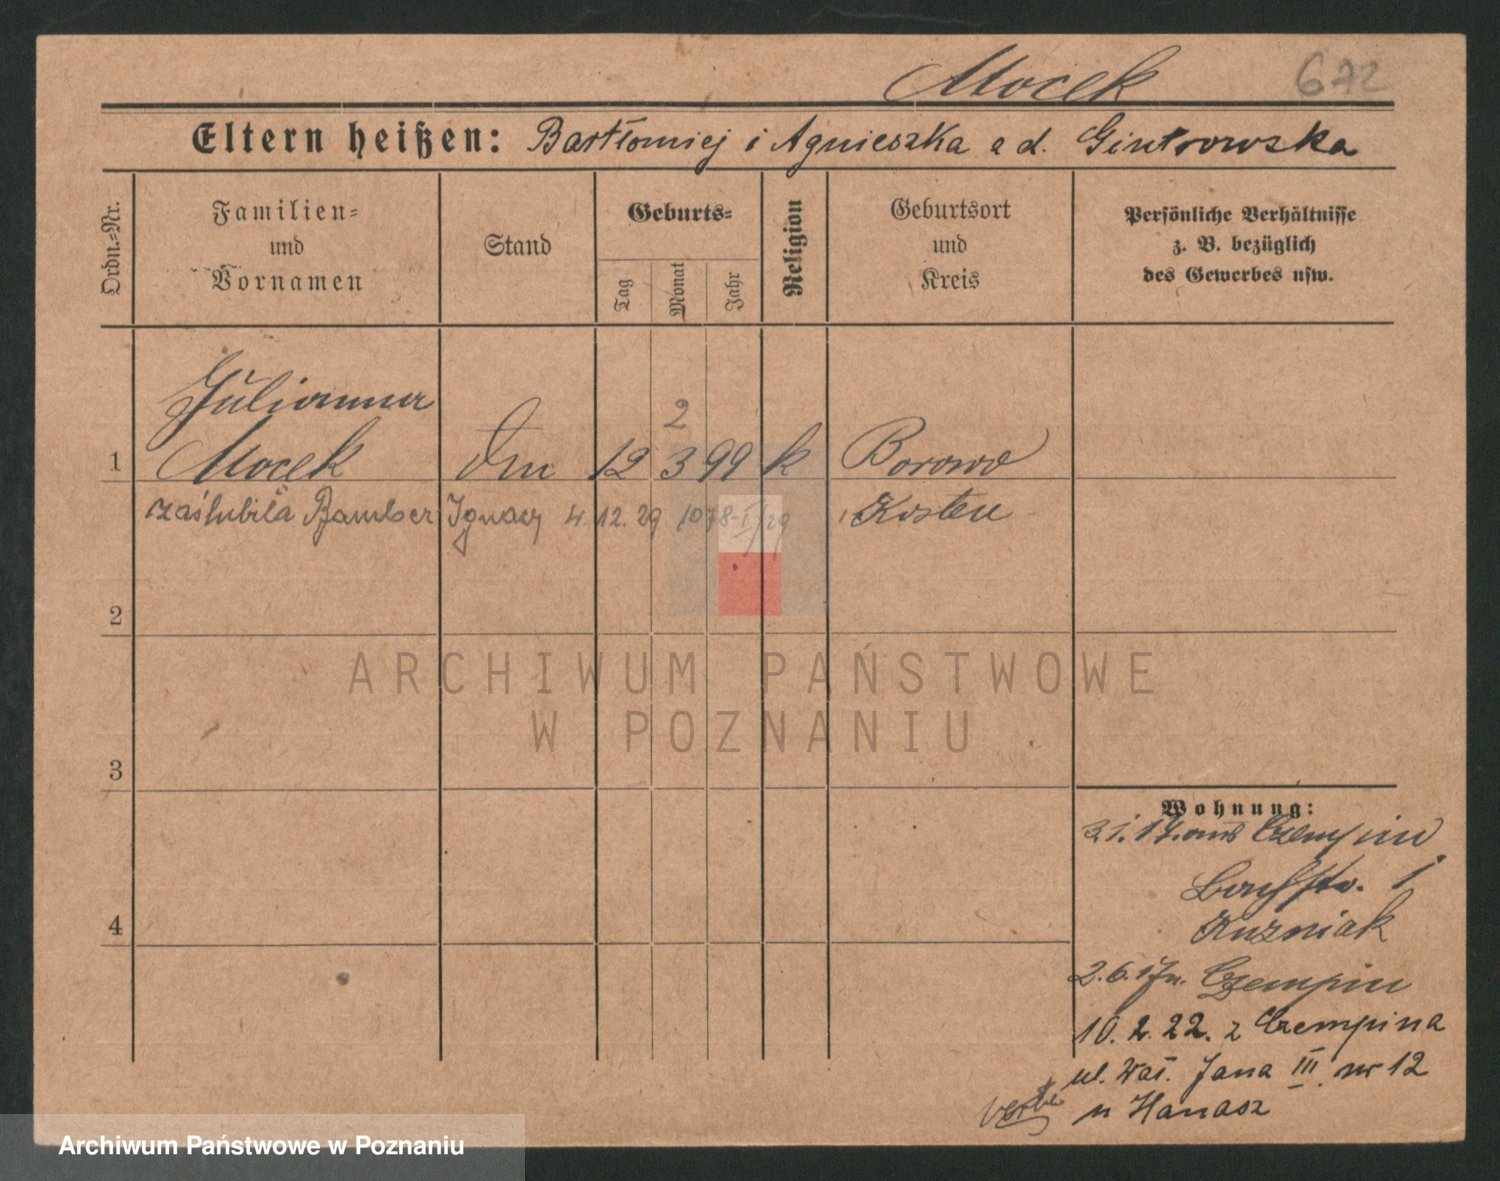 Mocek 672
Eltern heißen: Bartłomiej i Agnieszka a d. Gintrowska
Ordn.=Nr.
Familien=
und
Vornamen
Stand
Geburts=
Tag
Monat
Jahr
Religion
Geburtsort
und
Kreis
Persönliche Verhältnisse
z. B. bezüglich
des Gewerbes usw.
Julianna
2
1 Mocek 12 3 99 k Borowo
zaślubiła Bamber Ignacy 4.12.29 1078-I/29 Kosten
2
3
4
Wohnung:
Czempin
1
Kuzniak
2.6.17 n. Czempin
10.2.22. z Czempina
ul. Wał. Jana III nr 12
u Hanasz
ARCHIWUM PAŃSTWOWE
W POZNANIU
Archiwum Państwowe w Poznaniu